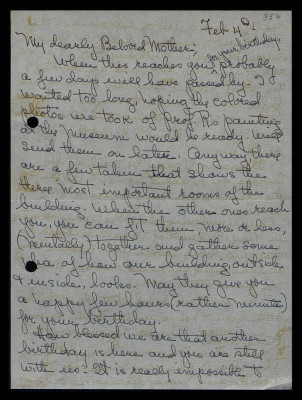 356
Feb 4th
My dearly Beloved Mother,
for your birthday.
When this reaches you, probably
a few days will have passed by. I
waited too long, hoping the colored
photos we took of Prof R's paintings
at the Museum would be ready. Will
send them on later. Anyway there
are a few taken that shows the
three most important rooms of the
building. When the other ones reach
you, you can fit them more or less,
(mentally) together and gather some
idea of how our building outside
& inside, looks. May they give you
a happy few hours (rather minutes)
for your birthday.
How blessed we are that another
birthday is here and you are still
with us. It is really impossible to